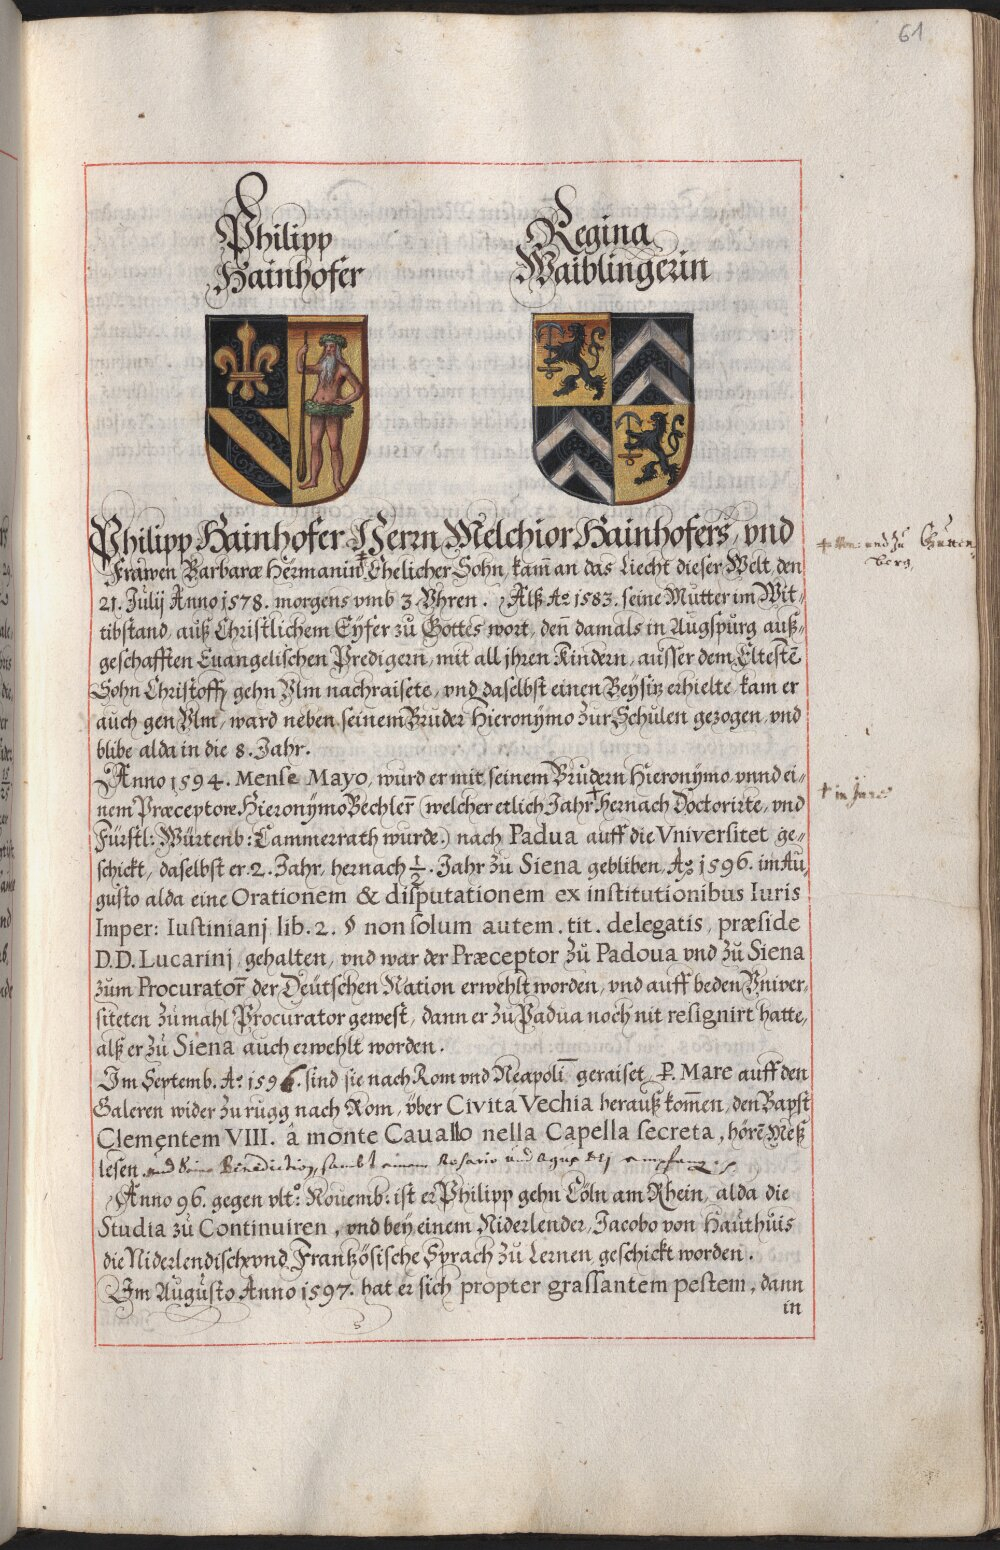 61
Philipp
Hainhofer
Regina
Waiblingerin
Philipp Hainhofer Herrn Melchior Hainhofers, vnd
Frawen Barbaræ Hermanin Ehelicher Sohn, kam̄ an das Liecht dieser Welt, den
21. Julij Anno 1578. morgens vmb 3 Vhren. Alß Aº 1583. seine Mutter im Wit-
tibstand, auß Christlichem Eyfer zu Gottes wort, den̄ damals in Augspurg auß-
geschafften Euangelischen Predigern, mit all jhren Kindern, ausser dem Eltestē
Sohn Christoff, gehn Vlm nachraisete, vnd daselbst einen Beysitz erhielte, kam er
auch gen Vlm, ward neben seinem Bruder Hieronymo zur Schulen gezogen, vnd
blibe alda in die 8. Jahr.
Anno 1594. Mense Mayo, wurd er mit seinem Brudern Hieronymo, vnnd ei-
nem Præceptore Hieronymo Bechler (welcher etlich Jahr + hernach Doctorirte, vnd
Fürstl: Würtenb: Cammerrath wurde.) nach Padua auff die Vniversitet ge-
schickt, daselbst er 2. Jahr, hernach ½. Jahr zu Siena gebliben, Aº 1596. im Au-
gusto alda eine Orationem & disputationem ex institutionibus Iuris
Imper: Iustinianj lib. 2. § non solum autem. tit. delegatis, præside
D.D. Lucarinj, gehalten, vnd war der Præceptor zu Padoua vnd zu Siena
zum Procurator der Deütschen Nation erwehlt worden, vnd auff beden Vniver-
siteten zumahl Procurator gewest, dann er zu Padua noch nit resignirt hatte,
alß er zu Siena auch erwehlt worden.
Im Septemb. Aº 1596. sind sie nach Rom vnd Neapoli geraiset, P. Mare auff den
Galeren wider zu rugg nach Rom, über Civita Vechia herauß kom̄en, den Bapst
Clementem VIII. â monte Cauallo nella Capella secreta, hörē Meß
lesen und seine Benediction, sambt einem Rosario und Agnus Dej empfangen
Anno 96. gegen vltº: Nouemb: ist er Philipp gehn Cöln am Rhein, alda die
Studia zu Continuiren, vnd bey einem Niderlender, Jacobo von Hauthuis
die Niderlendisch vnd Frantzösische Sprach zu Lernen, geschickt worden.
Im Augusto Anno 1597. hat er sich propter grassantem pestem, dann
in
+ von: und zu Gutten
berg,
+ in Jure